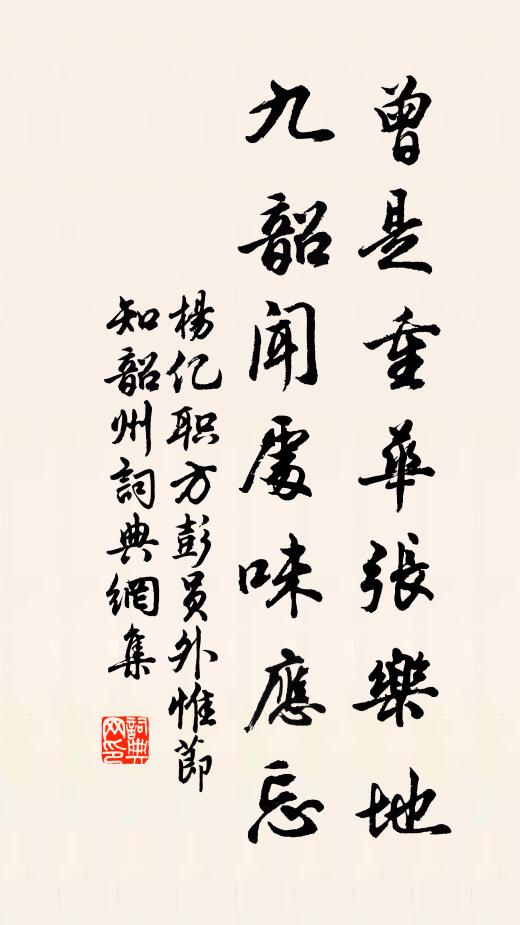 曾是重华張樂地
九韶聞處味應忘
楊亿职方彭员外惟節
知韶州詞典網集
詞典
网印